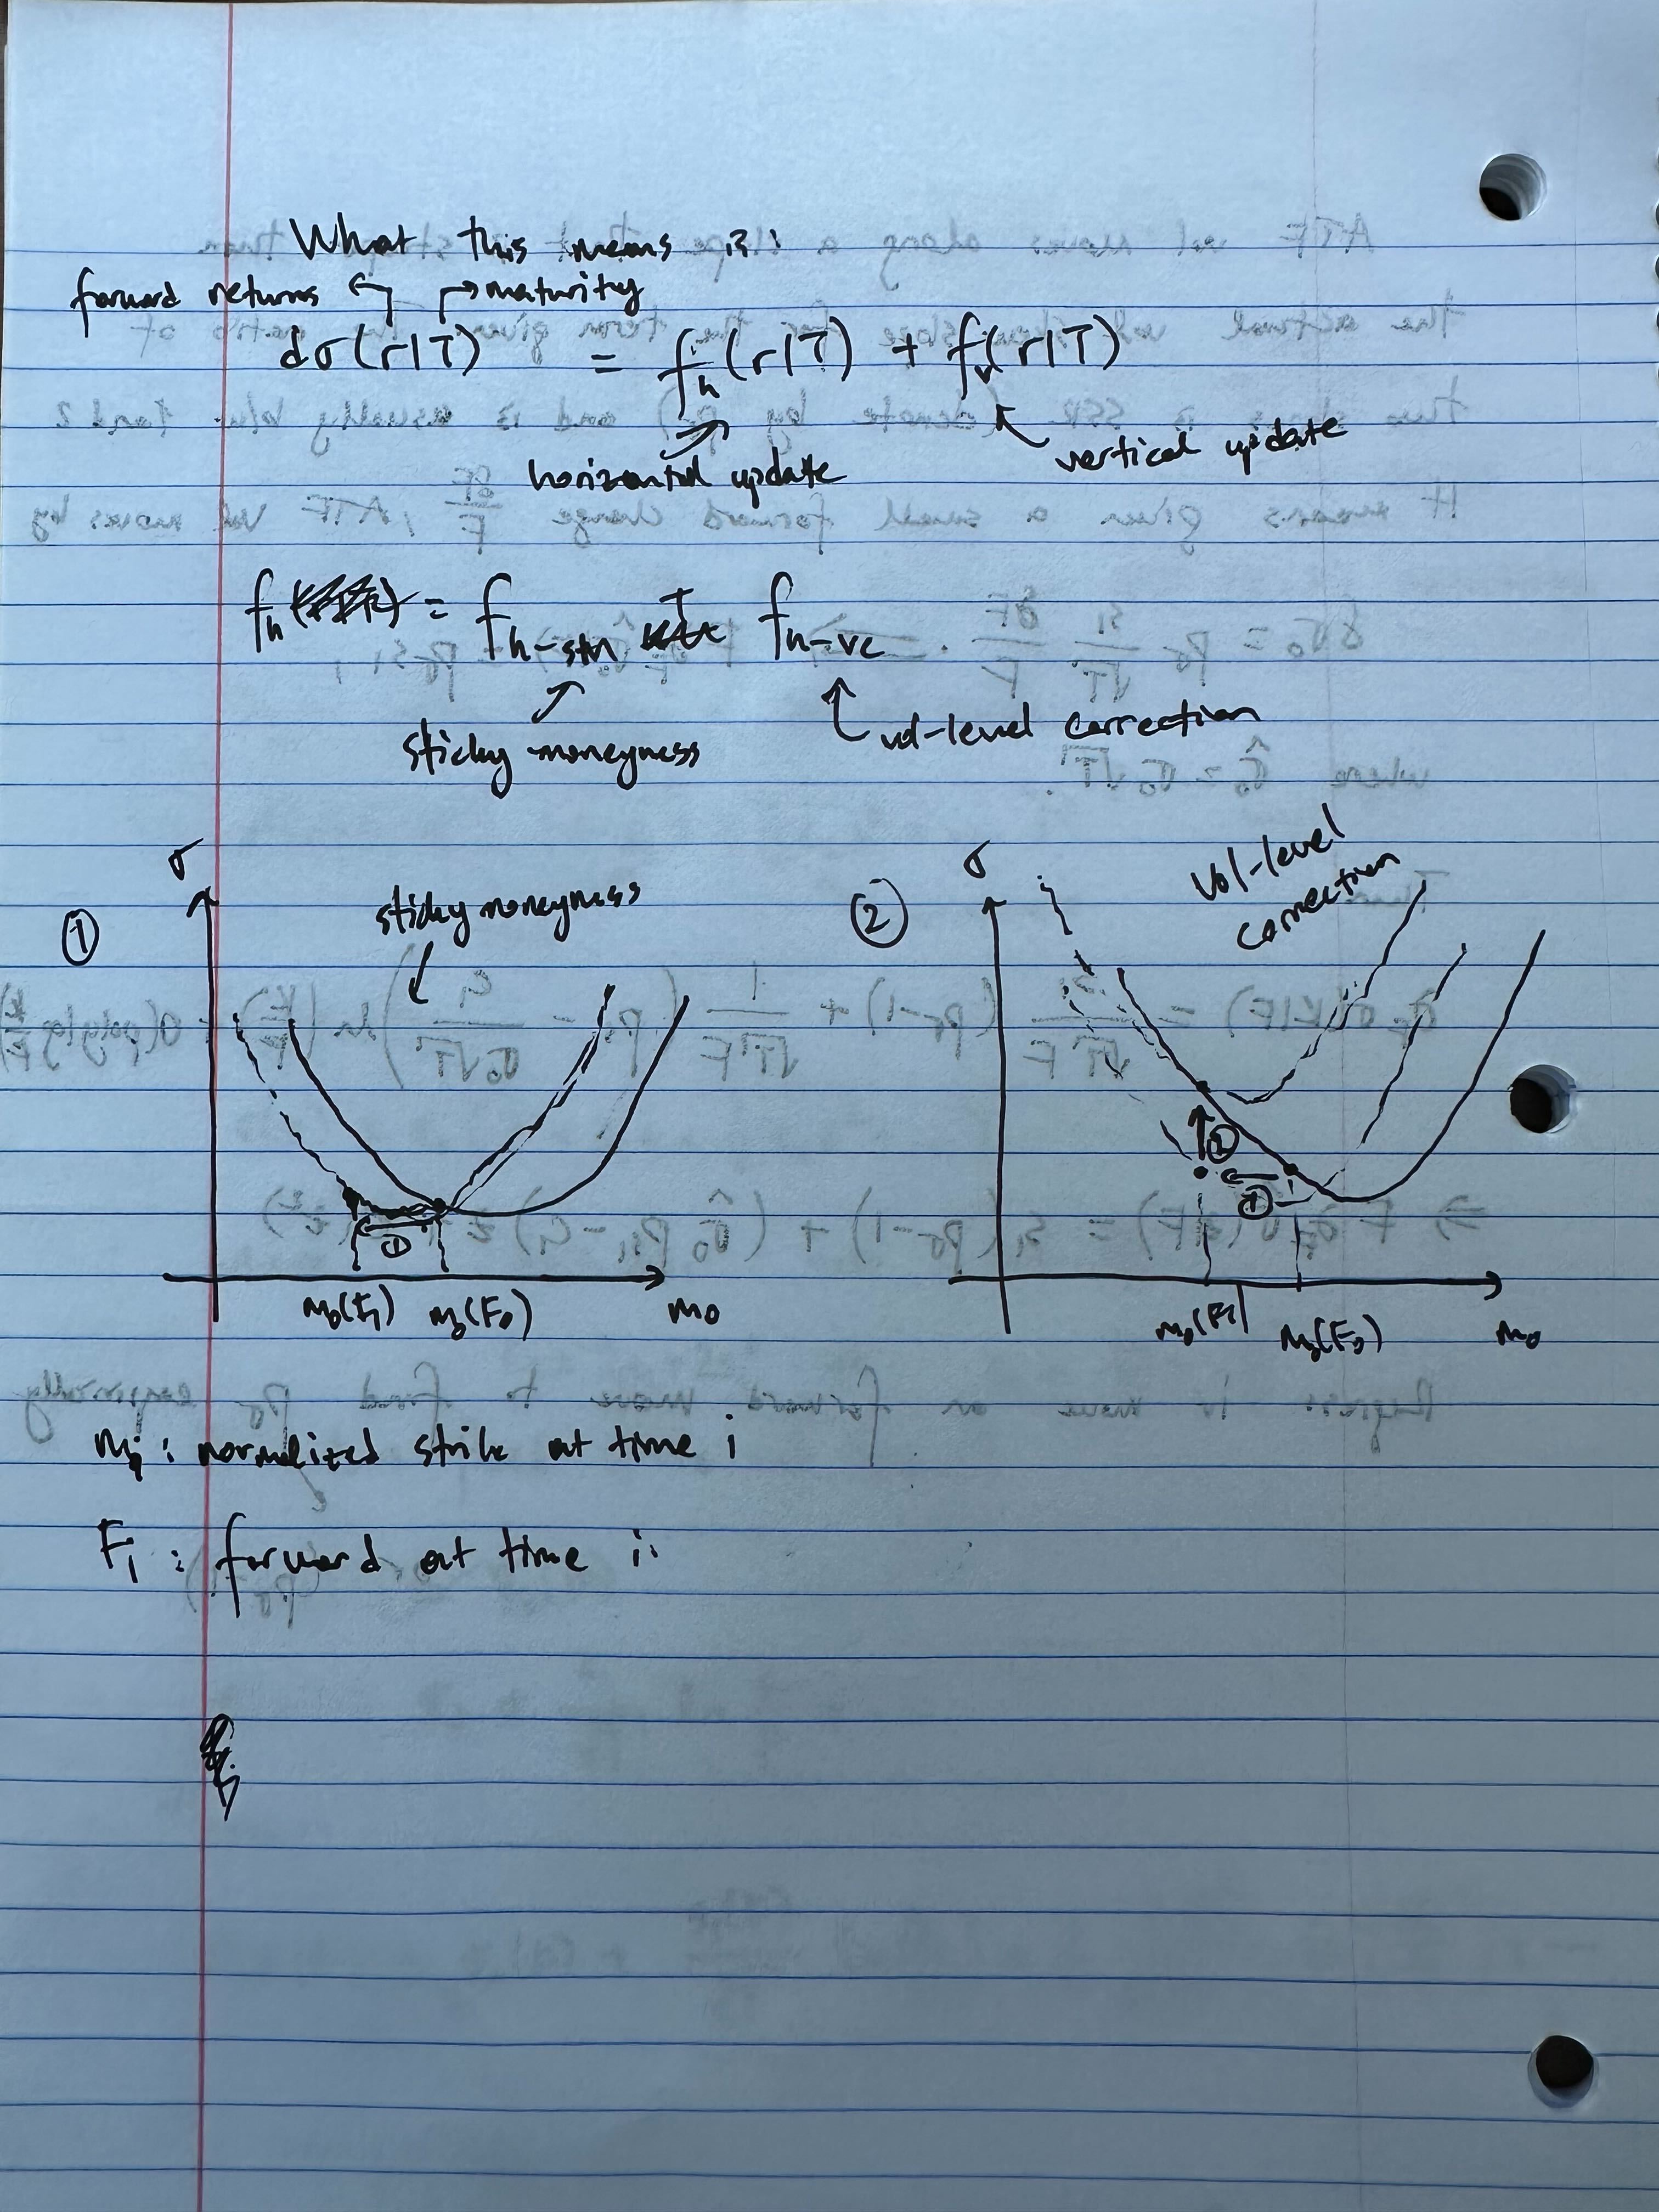 What this means is:
forward returns ← → maturity
dσ(r|T) = f_h(r|T) + f_v(r|T)
horizontal update
vertical update
f_h = f_{h-stm} + f_{h-vc}
sticky moneyness
vol-level correction
① σ
sticky moneyness
①
m_0(F_1) m_0(F_0) m_0
② σ
vol-level
correction
②
①
m_0(F_1) m_0(F_0) m_0
m_i : normalized strike at time i
F_i : forward at time i.